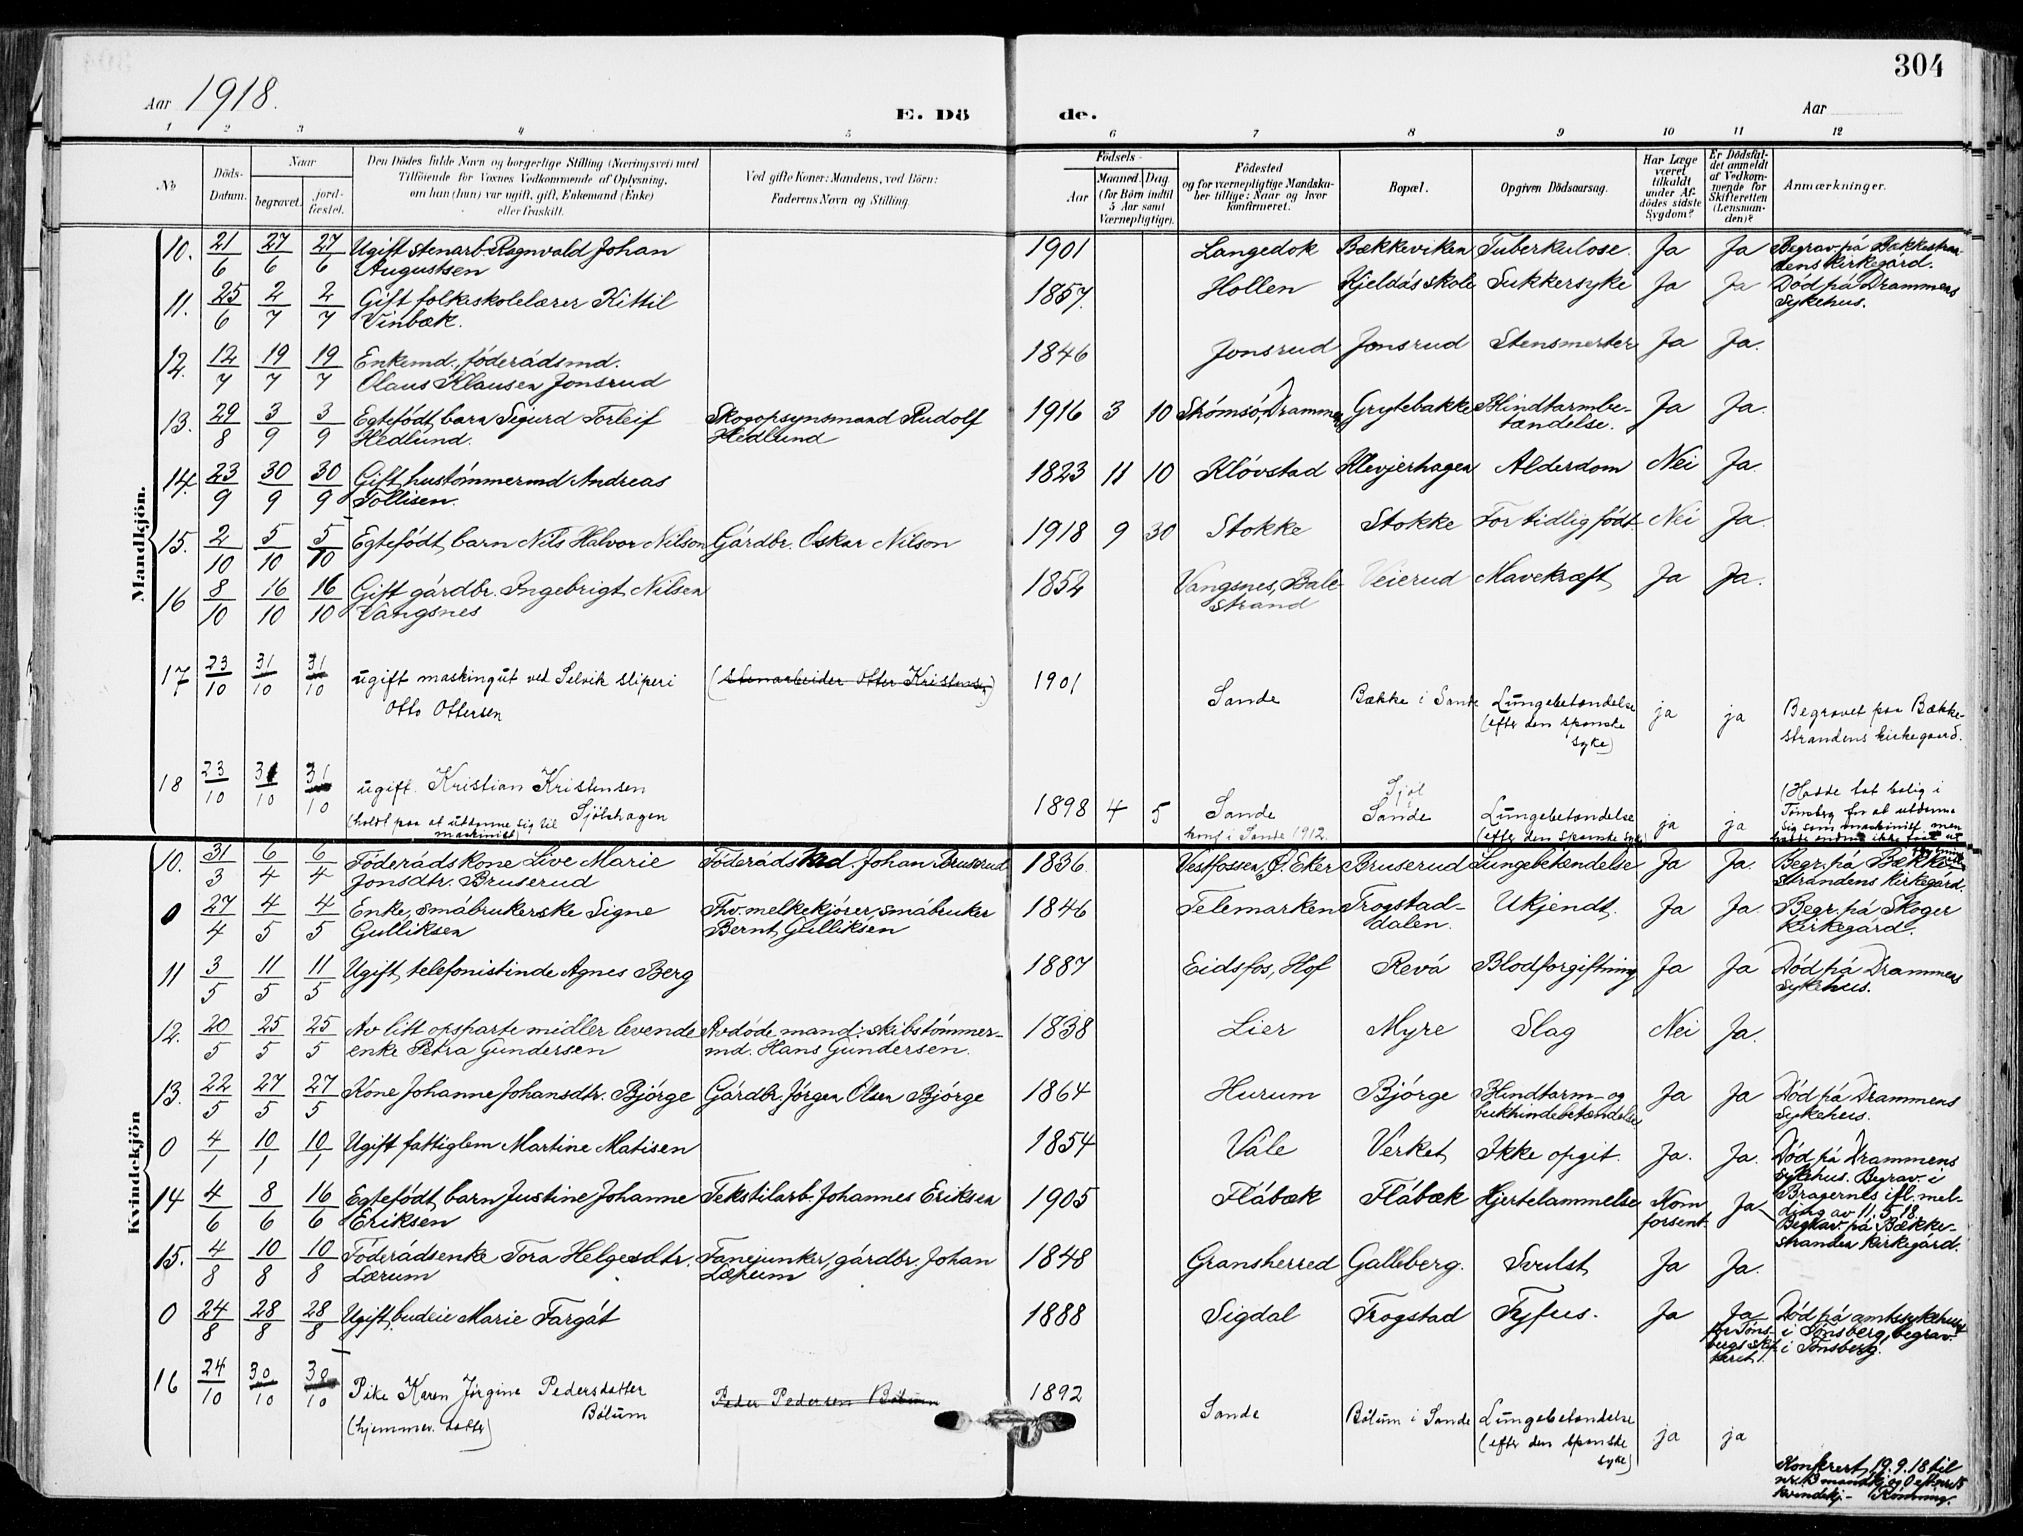 304
Aar 1918.
E. Döde.
Aar
1 2 3 4 5 6 7 8 9 10 11 12
No
Döds-Datum.
Naar
begravet.
jord-fæstet.
Den Dödes fulde Navn og borgerlige Stilling (Næringsvei) med
Tilföiende for Voxnes Vedkommende af Oplysning,
om han (hun) var ugift, gift, Enkemand (Enke)
eller fraskilt.
Ved gifte Koner: Mandens, ved Börn:
Faderens Navn og Stilling.
Födsels-
Aar
Maaned. Dag.
(for Börn indtil
5 Aar samt
Værnepligtige).
Födested
og for værnepligtige Mandska-
ber tillige: Naar og hvor
konfirmeret.
Bopæl.
Opgiven Dödsaarsag.
Har Læge
været
tilkaldt
under Af-
dödes sidste
Sygdom?
Er Dödsfal-
det anmeldt
af Vedkom-
mende for
Skifteretten
(Lensman-
den)?
Anmærkninger.
Mandkjön.
10. 21/6 27/6 27/6 Ugift stenarb. Ragnvald Johan 1901 Langedok Bækkeviken Tuberkulose. Ja Ja Begrav. på Bækkestran-
Augustsen dens kirkegård.
11. 25/6 2/7 2/7 Gift folkeskolelærer Kittil 1857. Hollen Kjeldås skole Sukkersyke Ja Ja Död på Drammens
Vinbæk. Sykehus.
12. 12/7 19/7 19/7 Enkemd., föderådsmd. 1846 Jonsrud Jonsrud Stensmerter Ja Ja.
Olaus Klausen Jonsrud
13. 29/8 3/9 3/9 Egtefödt barn Sigurd Torleif Skogopsynsmand Rudolf 1916 3 10 Strömsö, Drammen Grytebakke Blindtarmbe- Ja Ja.
Hedlund. Hedlund tændelse.
14. 23/9 30/9 30/9 Gift hustömmermd Andreas 1823 11 10 Klövstad Klevjerhagen Alderdom Nei Ja.
Tollisen.
15. 2/10 5/10 5/10 Egtefödt barn Nils Halvor Nilson Gårdbr. Oskar Nilson 1918 9 30 Stokke Stokke For tidlig födt Nei Ja.
16 8/10 16/10 16/10 Gift gårdbr. Ingebrigt Nilsen 1852 Vangsnes, Bale- Veierud Mavekræft Ja Ja.
Vangsnes strand
17 23/10 31/10 31/10 ugift maskingut ved Selvik sliperi (stenarbeider Otter Kristensen) 1901 Sande Bække i Sande Lungebetændelse ja ja Begravet paa Bække-
Otto Ottersen (efter den spanske strandens kirkegaard.
syke)
18 23/10 31/10 31/10 ugift. Kristian Kristensen 1898 4 5 Sande Sjöl Lungebetændelse ja ja (Hadde tat bolig i
(holdt paa at utdanne sig til Sjölshagen konf. i Sande 1912. Sande (efter den spanske syke) Tönsberg for at utdanne
maskinist) sig som maskinist men
hadde endnu ikke faat ut
Kvindekjön
10. 31/3 6/4 6/4 Föderådskone Live Marie Föderådsmd. Johan Bruserud 1836 Vestfossen, Ö. Eker Bruserud Lungebetændelse Ja Ja. Begr. på Bække-
Jonsdtr. Bruserud strandens kirkegård.
0 27/4 4/5 4/5 Enke, småbrukerske Signe Fhv. melkekjörer, småbruker 1846 Telemarken Trogstad- Ukjendt. Ja Ja. Begr. på Skoger
Gulliksen Bernt Gulliksen dalen. kirkegård.
11 3/5 11/5 11/5 Ugift, telefonistinde Agnes Berg 1887 Eidsfos, Hof Revå Blodforgiftning Ja Ja Död på Drammens
Sykehus.
12. 20/5 25/5 25/5 Av litt opsparte midler levende Avdöde mand: skibstömmer- 1838 Lier Myre Slag Nei Ja.
enke Petra Gundersen md. Hans Gundersen.
13. 22/5 27/5 27/5 Kone Johanne Johansdtr. Bjórge Gårdbr. Jörgen Olsen Bjórge 1864 Hurum Bjórge Blindtarm- og Ja Ja Död på Drammens
bukhindebetændelse Sykehus.
0 4/1 10/1 10/1 Ugift fattiglem Martine Matisen 1854 Våle Verket Ikke opgit. Ja. Ja. Död på Drammens
sykehus. Begrav. i
14 4/6 8/6 16/6 Egtefödt barn Justine Johanne Tekstilarb. Johannes Eriksen 1905 Flåbæk Flåbæk Hjertelammelse Kom Ja Bragernes ifl. mel-
Eriksen forsent ding av 11.5.18.
Begrav. på Bække-
15. 4/8 10/8 10/8 Föderådsenke Tora Helgesdtr. Fanejunker, gårdbr. Johan 1848 Gransherred Galleberg. Svulst Ja Ja. stranden kirkegård.
Lærum Lærum
0 24/8 28/8 28/8 Ugift, budeie Marie Fargåt 1888 Sigdal Trogstad Tyfus. Ja Ja Död på amtssykehuset
for Töns- i Tönsberg, begrav.
bergs Skif- i Tönsberg.
teret.
16 24/10 30/10 30/10 Pike Karen Jörgine Pedersdatter Peder Pedersen Bölum 1892 Sande Bölum i Sande Lungebetændelse ja ja
(hjemmev. datter) Bölum (efter den spanske
syke)
Konferert 19.9.18 til
nr. 13 mandkj og 0 efter nr 15
kvindekj. -